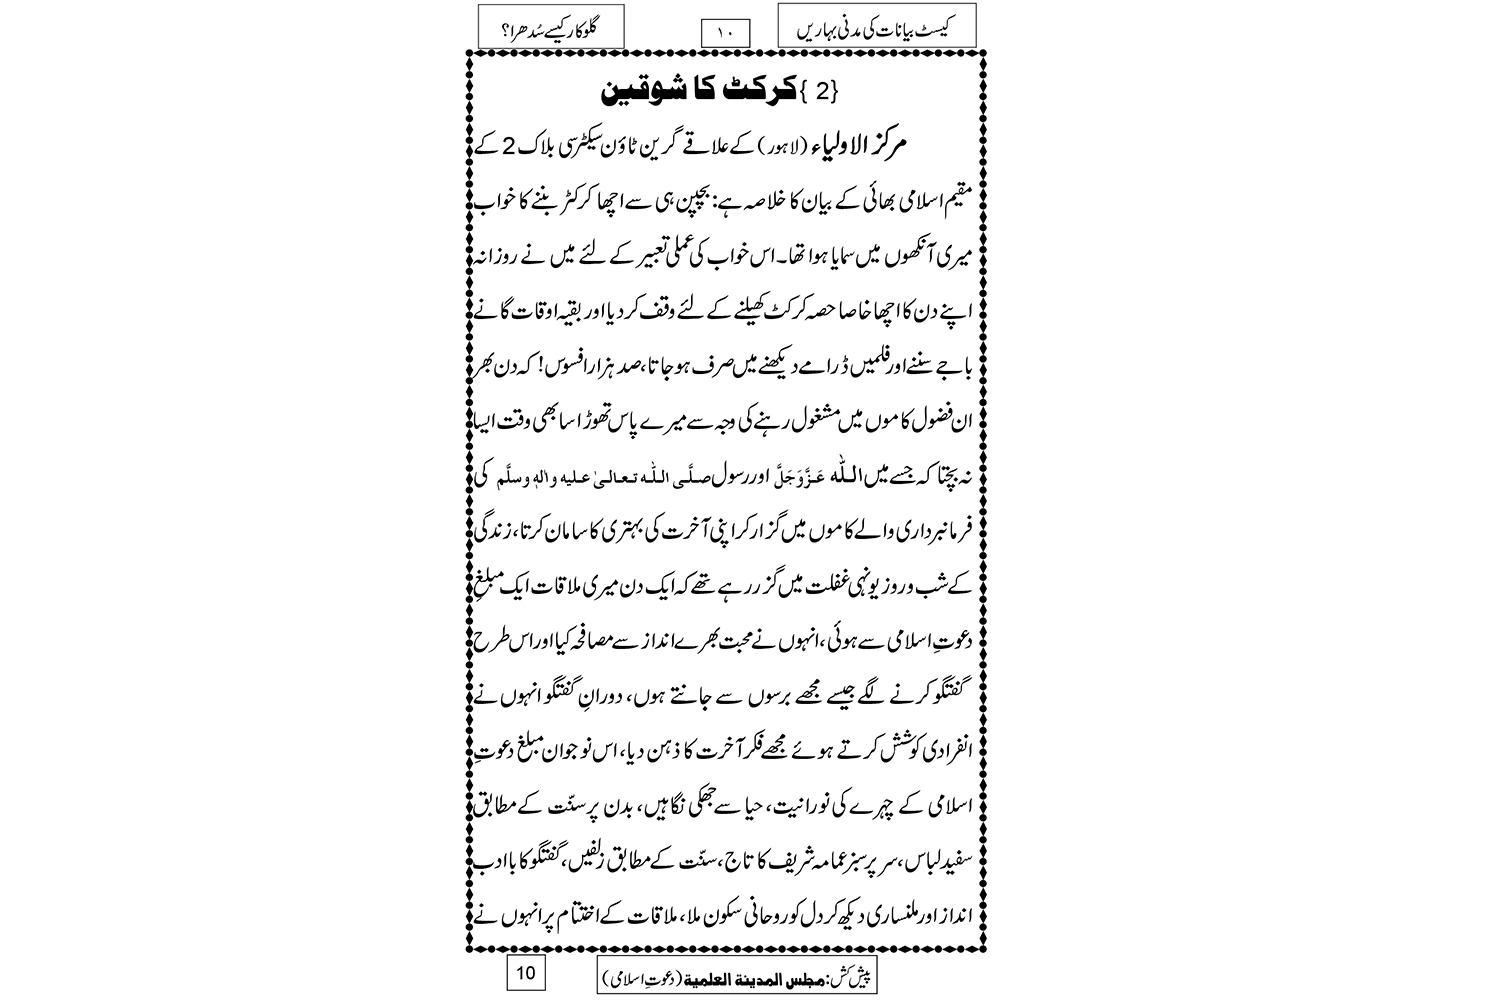 کیسٹ بیانات کی مدنی بہاریں ۱۰ گلوکار کیسے سُدھرا؟
{2} کرکٹ کا شوقین
مرکز الاولیاء (لاہور) کے علاقے گرین ٹاؤن سیکٹر سی بلاک 2 کے
مقیم اسلامی بھائی کے بیان کا خلاصہ ہے: بچپن ہی سے اچھا کرکٹر بننے کا خواب
میری آنکھوں میں سمایا ہوا تھا۔ اس خواب کی عملی تعبیر کے لئے میں نے روزانہ
اپنے دن کا اچھا خاصا حصہ کرکٹ کھیلنے کے لئے وقف کر دیا اور بقیہ اوقات گانے
باجے سننے اور فلمیں ڈرامے دیکھنے میں صرف ہو جاتا، صد ہزار افسوس! کہ دن بھر
ان فضول کاموں میں مشغول رہنے کی وجہ سے میرے پاس تھوڑا سا بھی وقت ایسا
نہ بچتا کہ جسے میں اللّٰہ عَزَّوَجَلَّ اور رسول صلَّی اللّٰہ تعالیٰ علیہ واٰلہٖ وسلَّم کی
فرمانبرداری والے کاموں میں گزار کر اپنی آخرت کی بہتری کا سامان کرتا، زندگی
کے شب و روز یونہی غفلت میں گزر رہے تھے کہ ایک دن میری ملاقات ایک مبلغِ
دعوتِ اسلامی سے ہوئی، انہوں نے محبت بھرے انداز سے مصافحہ کیا اور اس طرح
گفتگو کرنے لگے جیسے مجھے برسوں سے جانتے ہوں، دورانِ گفتگو انہوں نے
انفرادی کوشش کرتے ہوئے مجھے فکر آخرت کا ذہن دیا، اس نوجوان مبلغ دعوتِ
اسلامی کے چہرے کی نورانیت، حیا سے جھکی نگاہیں، بدن پر سنّت کے مطابق
سفید لباس، سر پر سبز عمامہ شریف کا تاج، سنّت کے مطابق زلفیں، گفتگو کا با ادب
انداز اور ملنساری دیکھ کر دل کو روحانی سکون ملا، ملاقات کے اختتام پر انہوں نے
پیش کش: مجلس المدینۃ العلمیۃ (دعوتِ اسلامی) 10